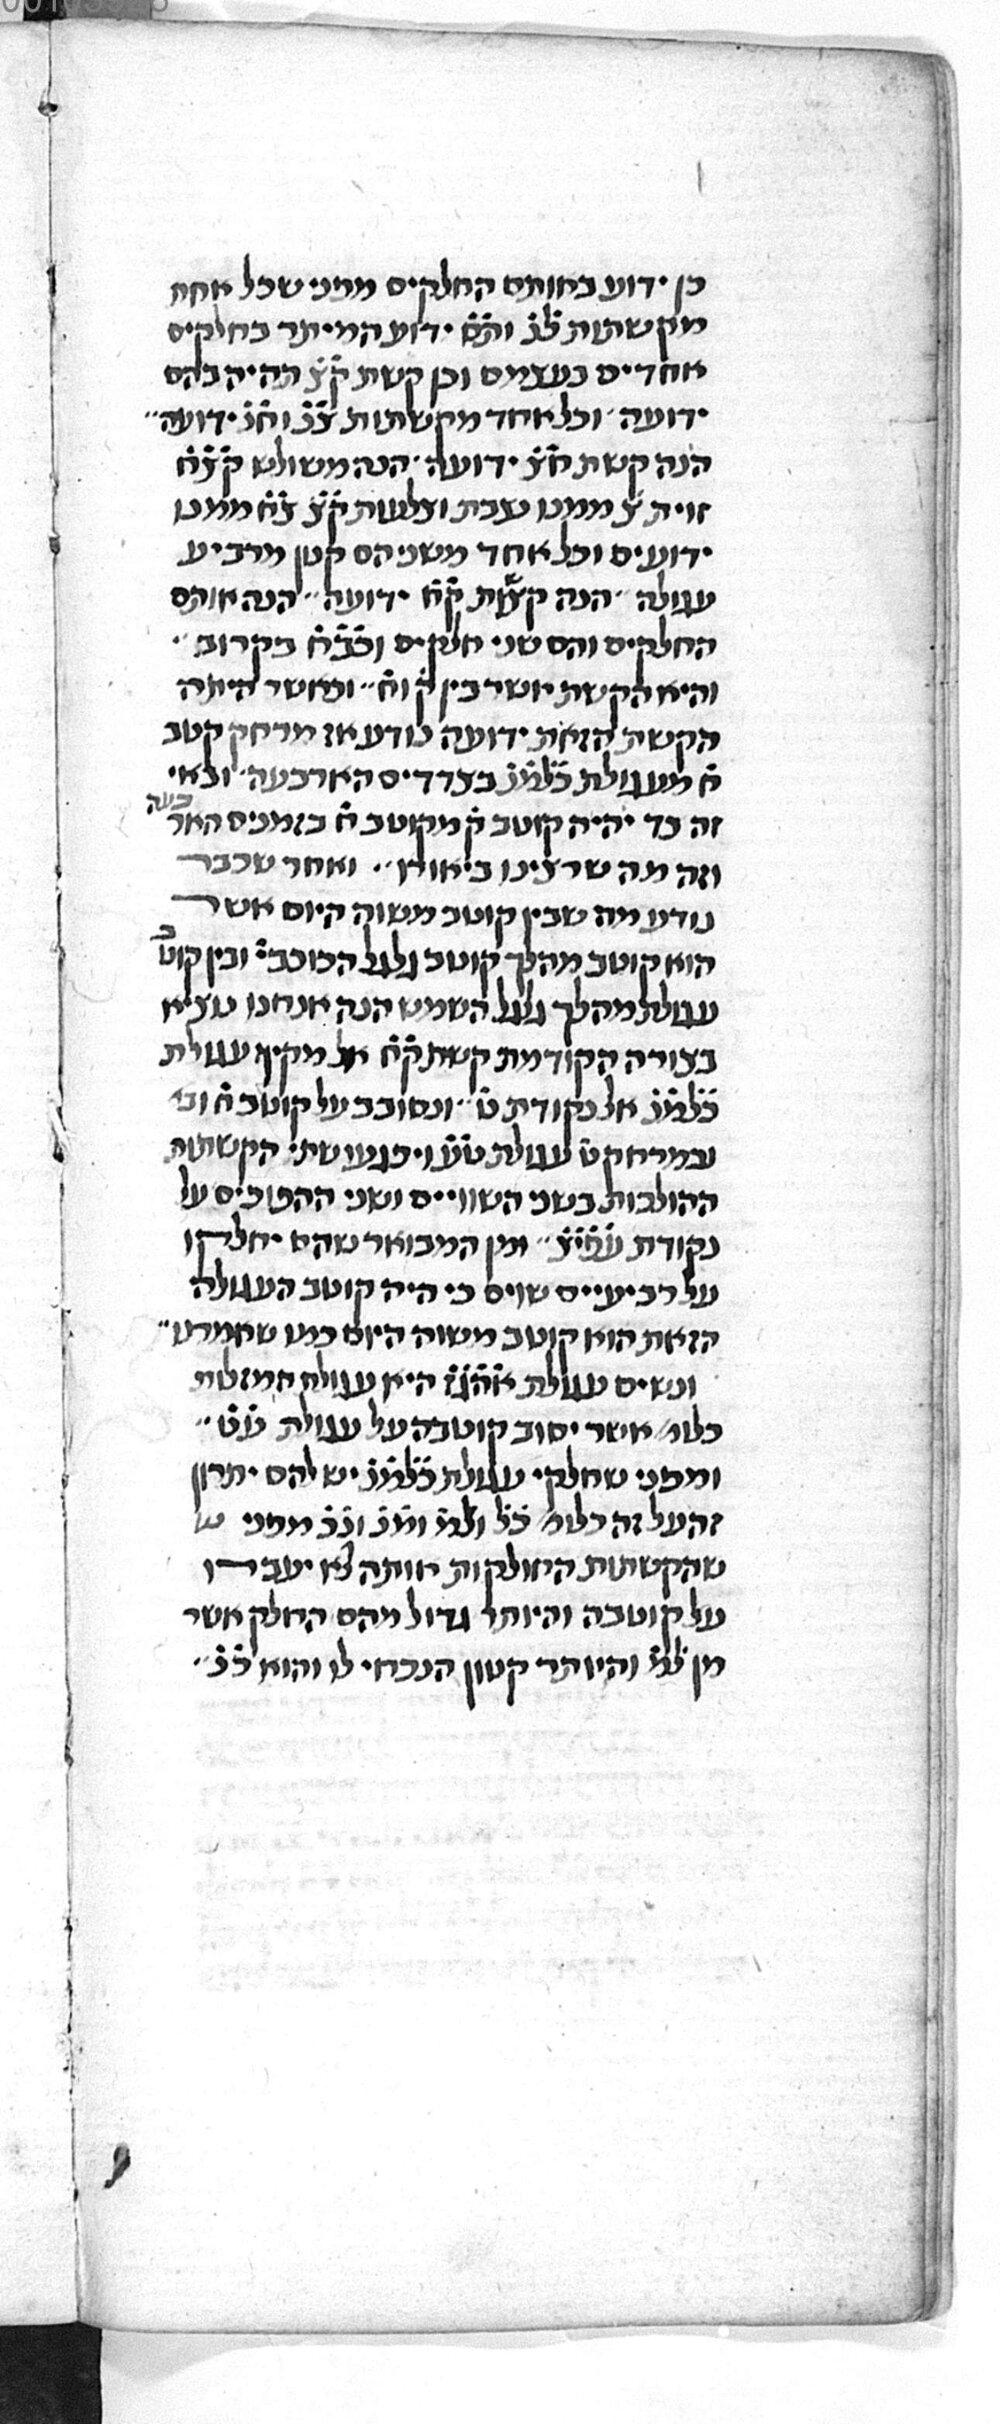 כן ידוע באותם החלקים מפני שכל אחת
מקשתות צ̇נ̇ ידוע המיתר בחלקים
אחדים בעצמם וכן קשת ק̇צ̇ תהיה בהם
ידועה׳ וכל אחד מקשתות צ̇נ̇ וח̇נ̇ ידועה״
הנה קשת ח̇צ̇ ידועה׳ הנה משולש ק̇צ̇ח̇
זוית צ̇ ממנו נצבת וצלעות ק̇צ̇ צ̇ח̇ ממנו
ידועים וכל אחד משניהם קטן מרביע
עגולה״ הנה קשת ק̇ח̇ ידועה״ הנה אותם
החלקים והם שני חלקים וכ̇ב̇ח̇ בקרוב״
והיא הקשת יושר בין ק̇ וח̇״ וכאשר היתה
הקשת הזאת ידועה נודע אז מרחק קטב
ח̇ מעגולת כ̇ל̇מ̇נ̇ בצדדים הארבעה׳ ובאי
זה צד יהיה קוטב ק̇ מקוטב ח̇ בזמנים הארבעה
וזה מה שרצינו ביאורו״ ואחר שכבר
נודע מה שבין קוטב משוה היום אשר
הוא קוטב מהלך קוטב גלגל הכוכבי׳ ובין קוטב
עגולת מהלך גלגל השמש הנה אנחנו נוציא
בצורה הקודמת קשת ק̇ח̇ אל מקיף עגולת
כ̇ל̇מ̇נ̇ אל נקודת ט̇״ ונסובב על קוטב ח̇
ובמרחק ט̇ עגולת ט̇ע̇ ויפגעו שתי הקשתות
ההולכות בשני השוויים ושני ההפוכים על
נקודת מן המבואר שהם יחלקו
על רביעיים שוים כי היה קוטב העגולה
הזאת הוא קוטב משוה היום כמו שאמרנו״
ונשים עגולת א̇ה̇ג̇ז̇ היא עגולת המזלות
כלומ׳ אשר יסוב קוטבה על עגולת ע̇ט̇״
ומפני שחלקי עגולת כ̇ל̇מ̇נ̇ יש להם יתרון
זה על זה כלומ׳ כ̇ל̇ ול̇מ̇ ומ̇נ̇ ונ̇כ̇ מפני ש
שהקשתות החולקות אותה לא יעברו
על קוטבה והיותר גדול מהם החלק אשר
מן ל̇מ̇ והיותר קטון הנכחי לו והוא כ̇נ̇״